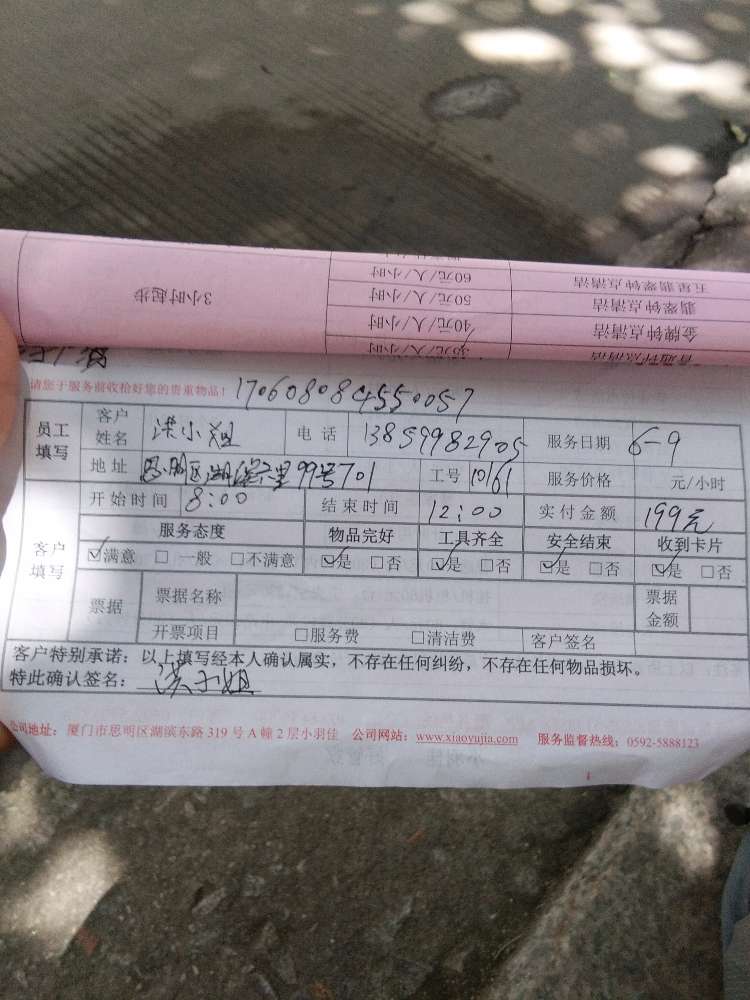 五星翡翠钟点清洁 60元/人/小时 3小时起步
翡翠钟点清洁 50元/人/小时
金牌钟点清洁 40元/人/小时
普通钟点清洁
请您于服务前收拾好您的贵重物品! 170608084550057
员工填写 客户姓名 洪小姐 电话 13859982905 服务日期 6-9
地址 思明区湖滨 里99号701 工号 10161 服务价格 元/小时
客户填写 开始时间 8:00 结束时间 12:00 实付金额 199元
服务态度 物品完好 工具齐全 安全结束 收到卡片
☑满意 □一般 □不满意 ☑是 □否 ☑是 □否 ☑是 □否 ☑是 □否
票据 票据名称 票据金额
开票项目 □服务费 □清洁费 客户签名
客户特别承诺：以上填写经本人确认属实，不存在任何纠纷，不存在任何物品损坏。
特此确认签名： 洪小姐
公司地址：厦门市思明区湖滨东路319号A幢2层小羽佳 公司网站：www.xiaoyujia.com 服务监督热线：0592-5888123